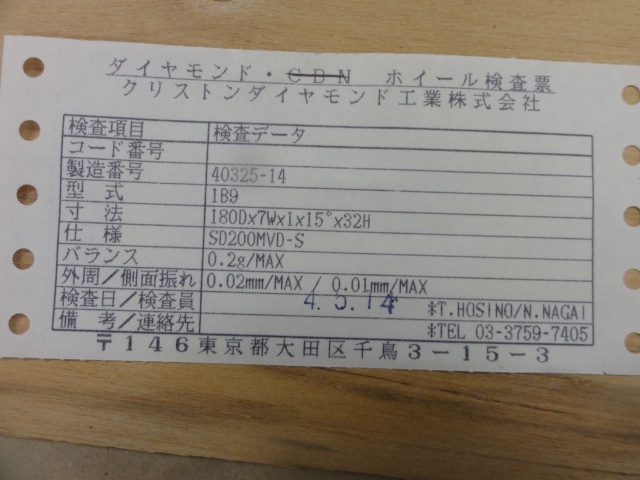 ダイヤモンド・CBN ホイール検査票
クリストンダイヤモンド工業株式会社
検査項目 検査データ
コード番号
製造番号 40325-14
型式 1B9
寸法 180Dx7Wx1x15°x32H
仕様 SD200MVD-S
バランス 0.2g/MAX
外周/側面振れ 0.02mm/MAX / 0.01mm/MAX
検査日/検査員 4.5.14 *T.HOSINO/N.NAGAI
備考/連絡先 *TEL 03-3759-7405
〒146東京都大田区千鳥3-15-3